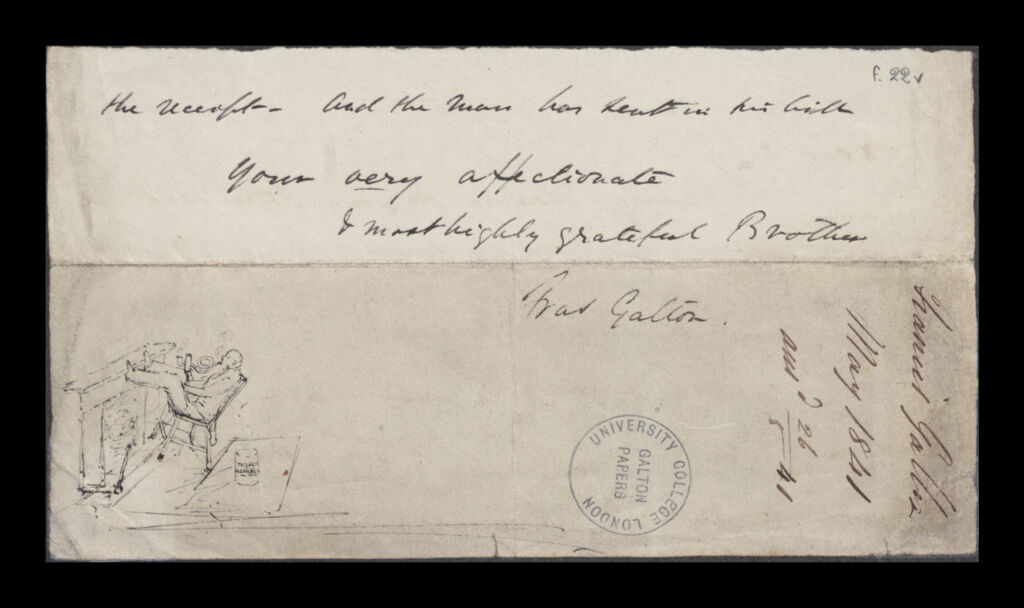 f. 22v
the receipt - And the Man has sent in his bill
Your very affectionate
& most highly grateful Brother
Fras Galton.
Francis Galton
May 1841
ans d 26/5 - 41
UNIVERSITY COLLEGE LONDON
GALTON
PAPERS